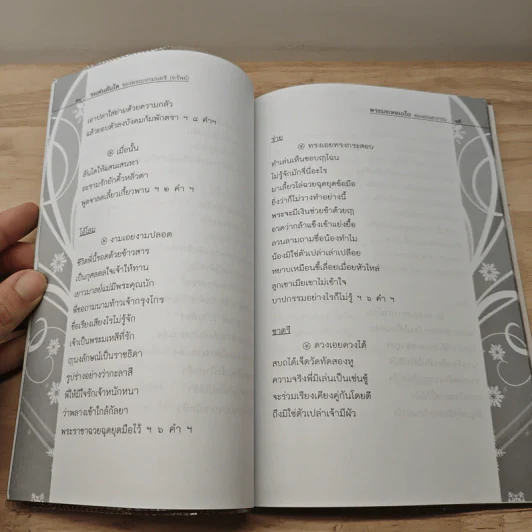 ระเด่นลันได ของพระมหามนตรี (ทรัพย์)
เอาปลาใส่ย่ามด้วยความกลัว
แล้วยอบตัวลงบังคมก้มพักตรา ฯ ๘ คำฯ
๏ เมื่อนั้น
ลันไดให้แสนเสน่หา
อะรามรักยักคิ้วหลิ่วตา
พูดจาลดเลี้ยวเกี้ยวพาน ฯ ๒ คำ ฯ
โอ้โลม
๏ งามเอยงามปลอด
ชีวิตพี่นี้รอดด้วยข้าวสาร
เป็นกุศลดลใจเจ้าให้ทาน
เยาวมาลย์แม่มีพระคุณนัก
พี่ขอถามนามท้าวเจ้ากรุงไกร
ชื่อเรียงเสียงไรไม่รู้จัก
เจ้าเป็นพระมเหสีที่รัก
ฤๅนงลักษณ์เป็นราชธิดา
รูปร่างอย่างว่ากะลาสี
พี่ให้มีใจรักเจ้าหนักหนา
ว่าพลางเข้าใกล้กัลยา
พระราชาฉวยฉุดยุดมือไว้ ฯ ๖ คำ ฯ
พระมะเหลเถไถ
ร่าย
๏ ทรงเอยทรงกระสอบ
ทำเล่นเห็นชอบฤๅไฉน
ไม่รู้จักมักจี่นี่อะไร
มาเลี้ยวไล่ฉวยฉุดยุดข้อมือ
ยิ่งว่าก็ไม่วางทำอย่างนี้
พระจะมีเงินช่วยข้าด้วยฤๅ
อวดว่ากล้าแข็งเข้าแย่งยื้อ
ลวนลามถามชื่อน้องทำไม
น้องมิใช่ตัวเปล่าเล่าเปลือย
หยาบเหมือนขี้เลื่อยเมื่อยหัวไหล่
ลูกเขาเมียเขาไม่เข้าใจ
บาปกรรมอย่างไรก็ไม่รู้ ฯ ๖ คำ ฯ
ชาตรี
๏ ดวงเอยดวงไต้
สบถได้เจ็ดวัดทัดสองหู
ความจริงพี่มิเล่นเป็นเช่นชู้
จะร่วมเรียงเคียงคู่กันโดยดี
ถึงมิใช่ตัวเปล่าเจ้ามีผัว